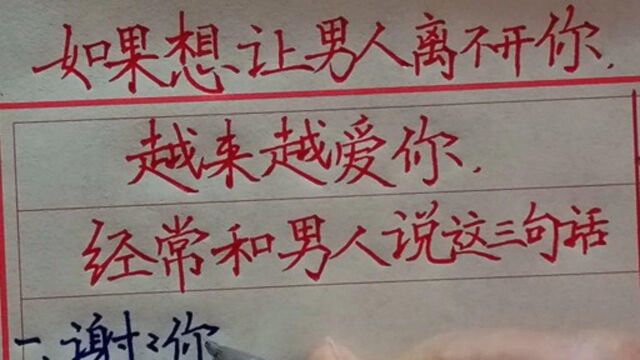 如果想让男人离不开你.
越来越爱你.
经常和男人说这三句话
一、谢〻你